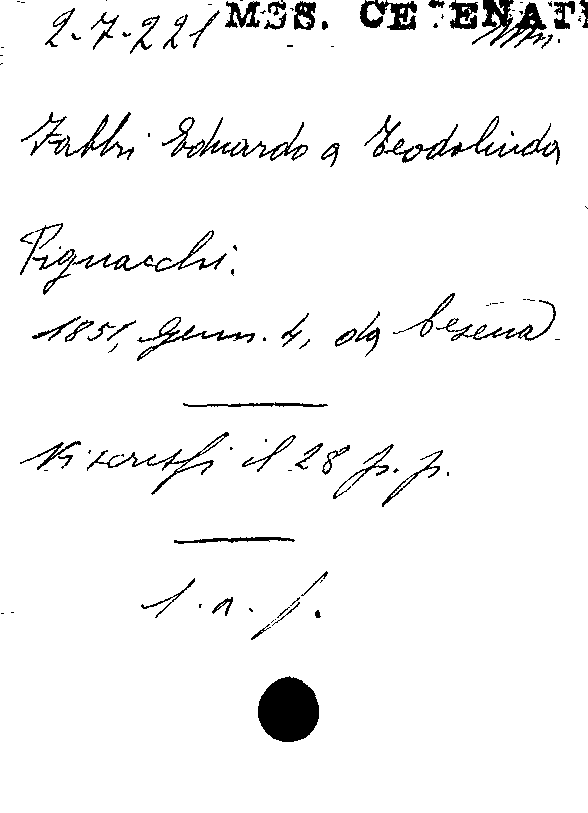 2-7-221 MSS. CESENATI
Fabbri Eduardo a Teodolinda
Pignacchi.
1851, Genn. 4, da Cesena
Vi scrissi il 28 p. p.
l. a. f.